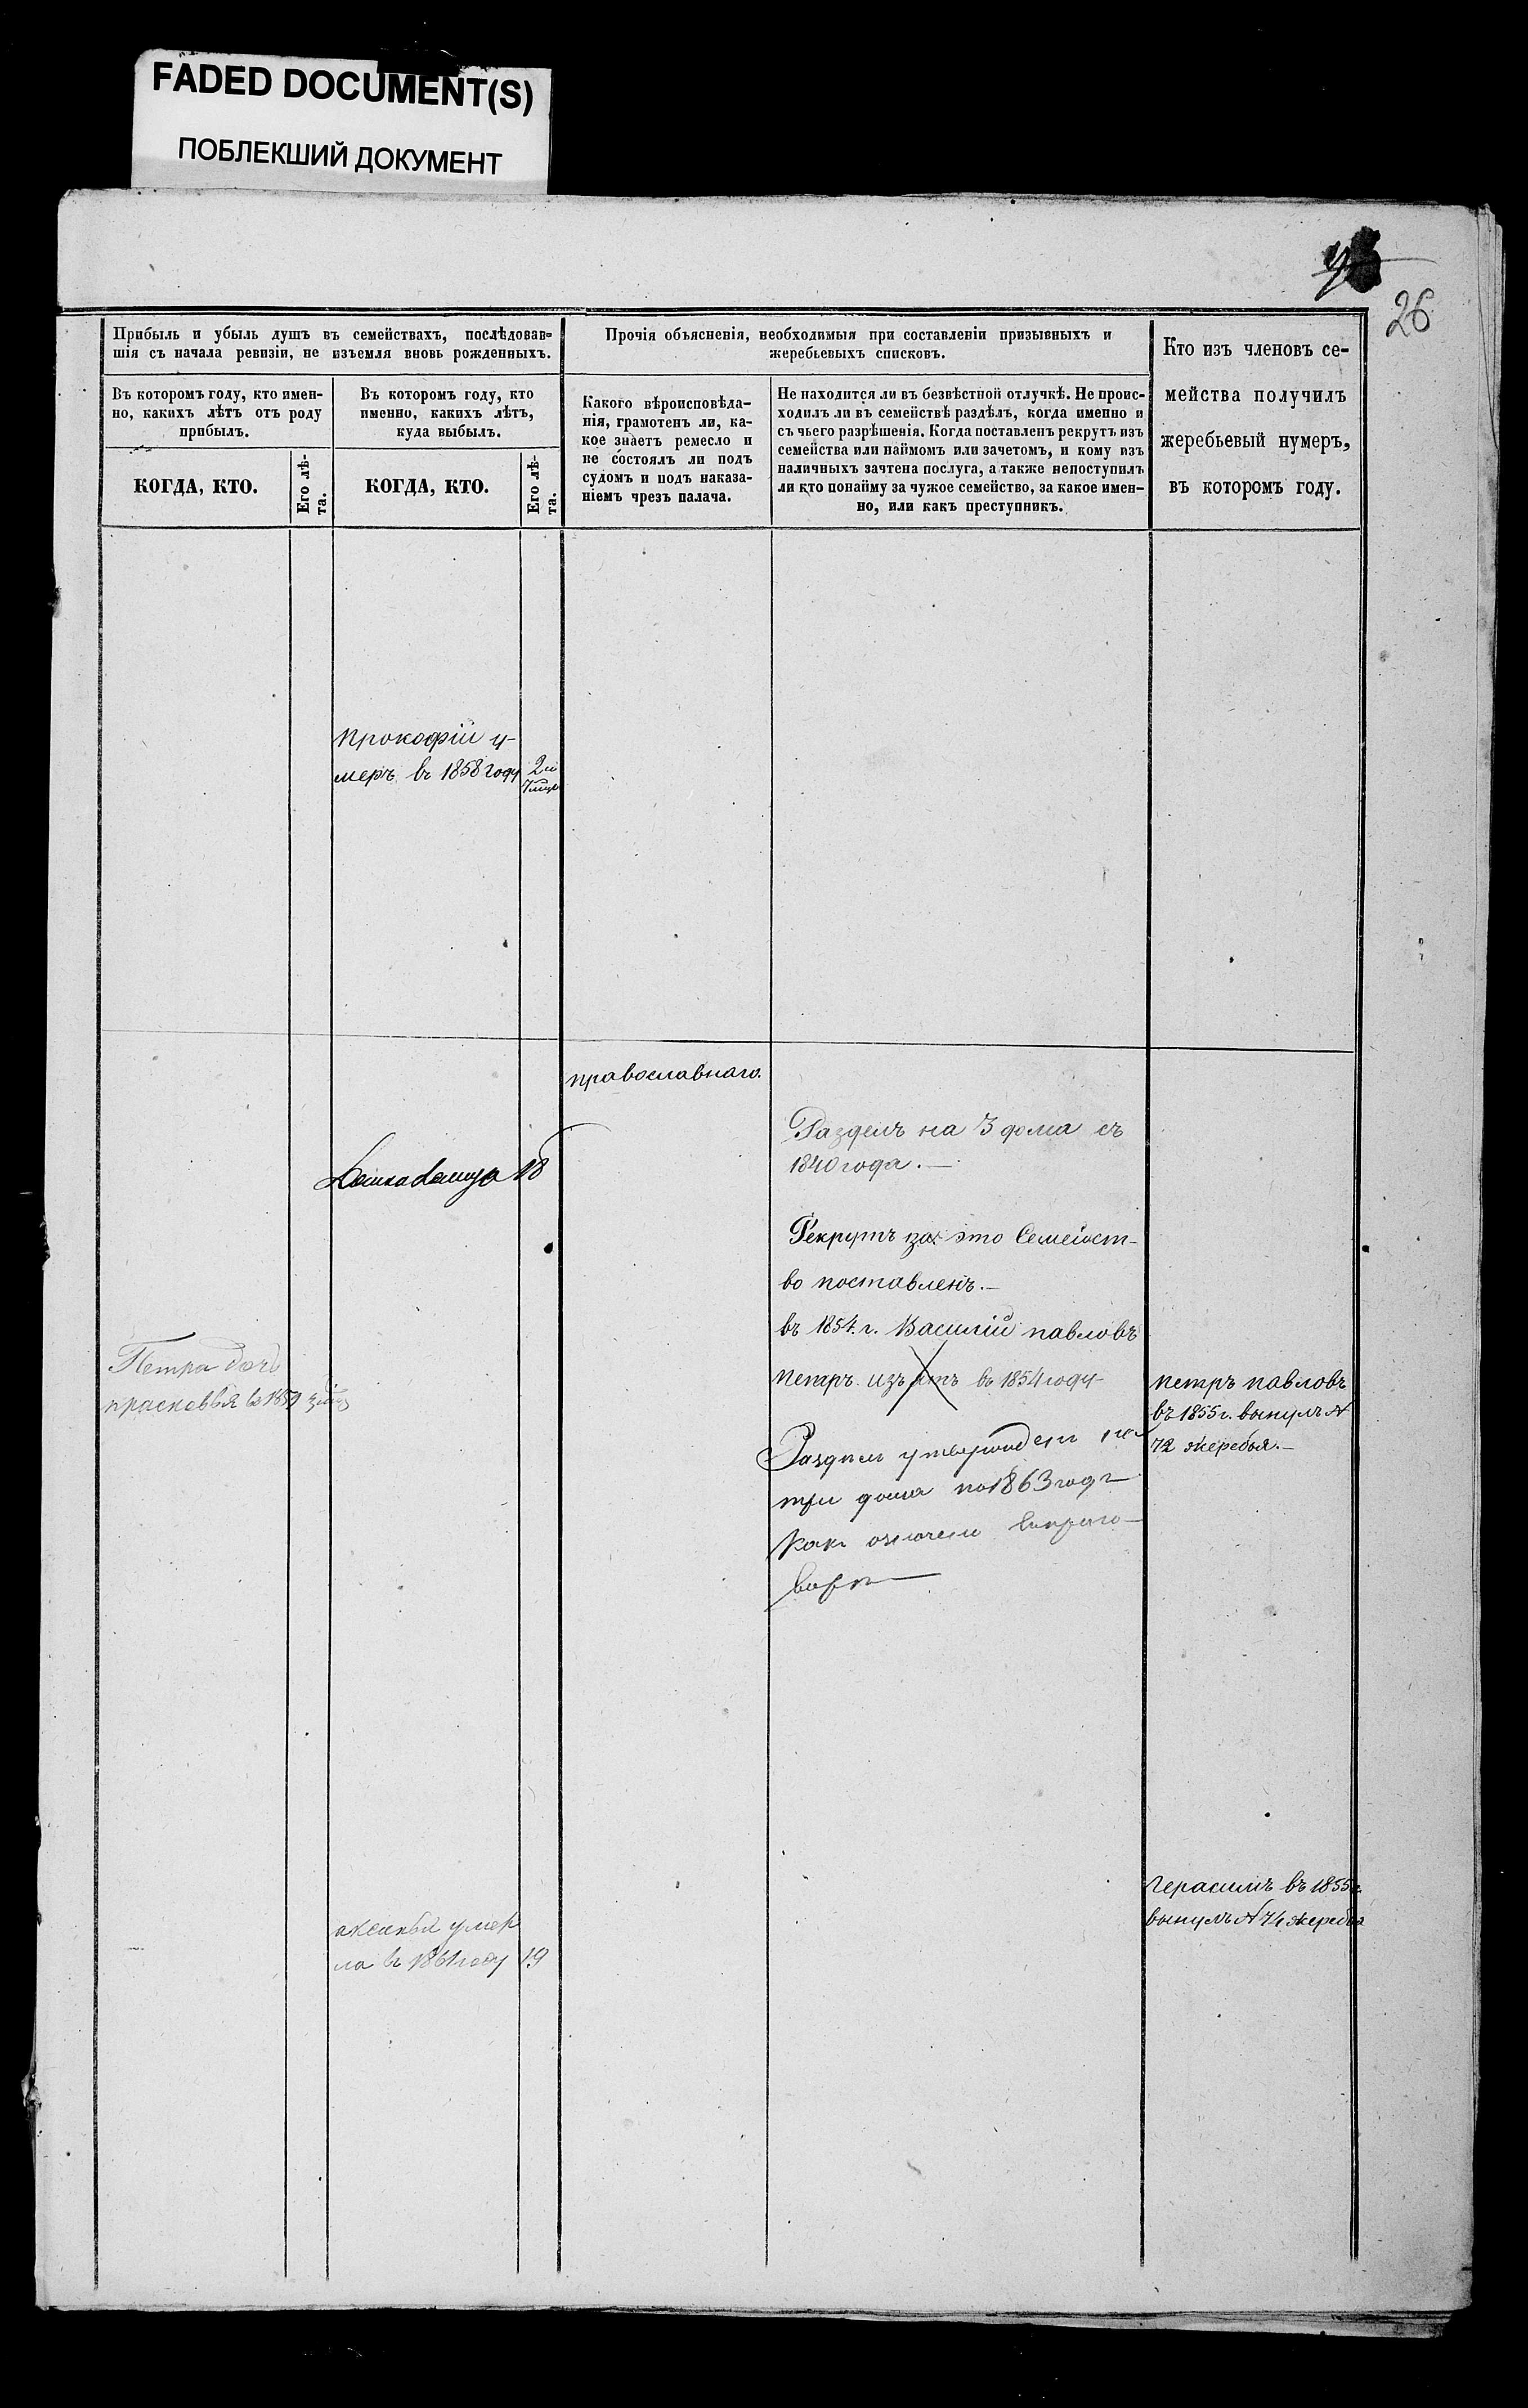 FADED DOCUMENT(S)
ПОБЛЕКШИЙ ДОКУМЕНТ
26
Прибыль и убыль душъ въ семействахъ, послѣдовав-
шія съ начала ревизіи, не изъемля вновь рожденныхъ.
Въ которомъ году, кто имен-
но, какихъ лѣтъ отъ роду
прибылъ.
КОГДА, КТО.
Его лѣ-
та.
Въ которомъ году, кто
именно, какихъ лѣтъ,
куда выбылъ.
КОГДА, КТО.
Его лѣ-
та.
Прочія объясненія, необходимыя при составленіи призывныхъ и
жеребьевыхъ списковъ.
Какого вѣроисповѣда-
нія, грамотенъ ли, ка-
кое знаетъ ремесло и
не состоялъ ли подъ
судомъ и подъ наказа-
ніемъ чрезъ палача.
Не находится ли въ безвѣстной отлучкѣ. Не проис-
ходилъ ли въ семействѣ раздѣлъ, когда именно и
съ чьего разрѣшенія. Когда поставленъ рекрутъ изъ
семейства или наймомъ или зачетомъ, и кому изъ
наличныхъ зачтена послуга, а также непоступилъ
ли кто понайму за чужое семейство, за какое имен-
но, или какъ преступникъ.
Кто изъ членовъ се-
мейства получилъ
жеребьевый нумеръ,
въ которомъ году.
прокофій у-
меръ въ 1858 году
2 и
православнаго.
Разделъ на 3 дома съ
1840 года.—
18
Рекрутъ за это Семейст-
во поставленъ.—
въ 1854. г. Василій павловъ
петръ изъ въ 1854 году
Петра доч
прасковья в 1859
петръ павловъ
въ 1855 г. вынулъ №
72 жеребья.—
Раздел утвержден на
три дома по 1863 год
Как
герасимъ въ 1855 г.
вынулъ № 74 жеребья
аксинья умер
ла в 1861 году 19